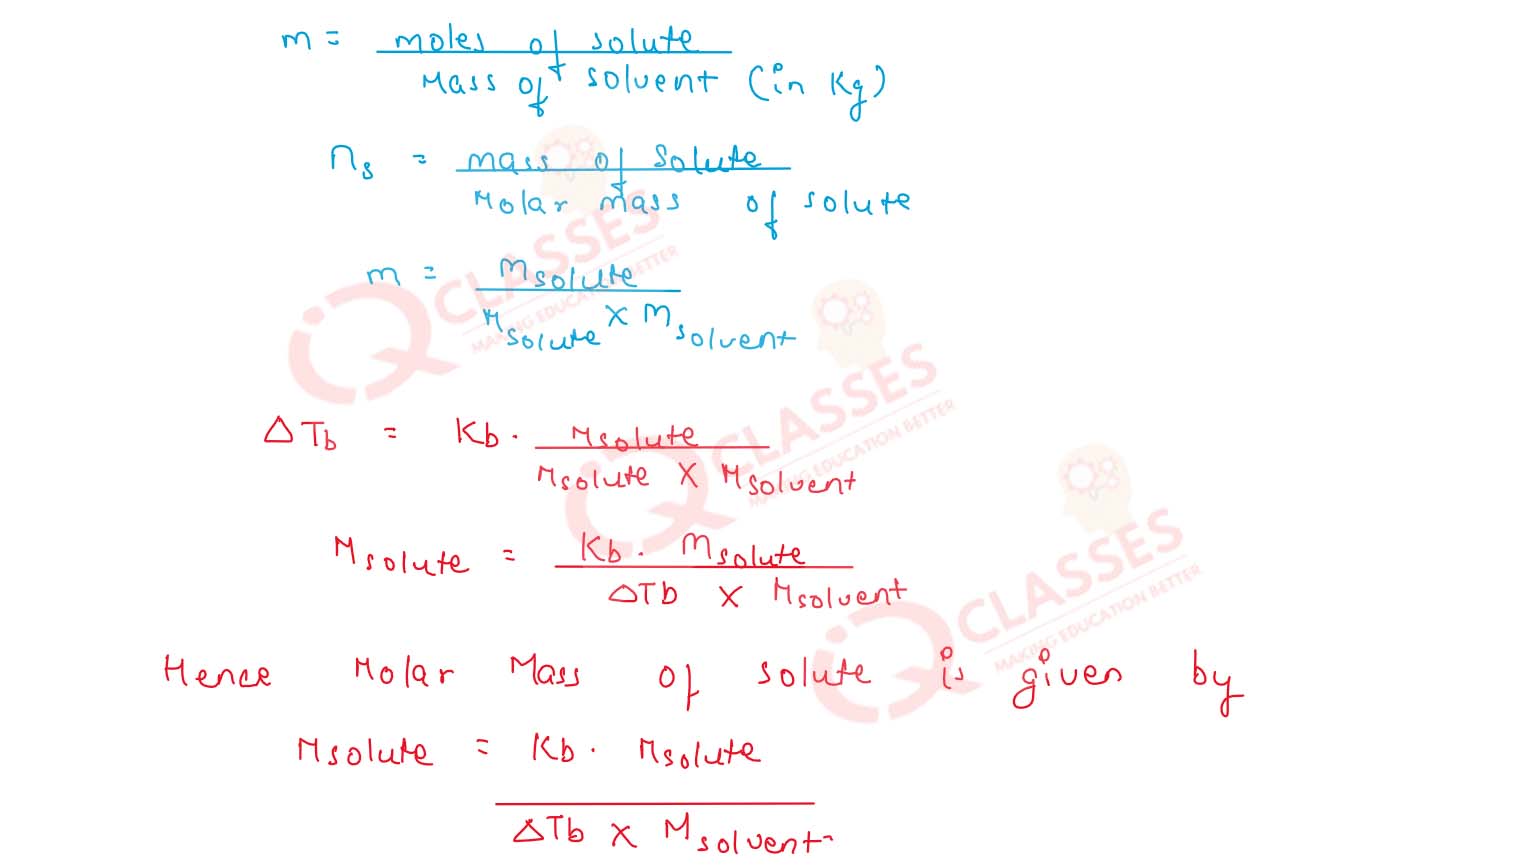 m = moles of solute
Mass of solvent (in Kg)
ns = mass of solute
Molar mass of solute
m = msolute
Msolute X msolvent
ΔTb = Kb. Msolute
Msolute X Msolvent
Msolute = Kb. msolute
ΔTb X Msolvent
Hence Molar Mass of solute is given by
Msolute = Kb. Msolute
ΔTb X Msolvent
iQ CLASSES
MAKING EDUCATION BETTER
iQ CLASSES
MAKING EDUCATION BETTER
iQ CLASSES
MAKING EDUCATION BETTER